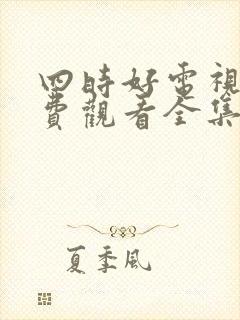 四時好電視
費觀看全集
夏季風